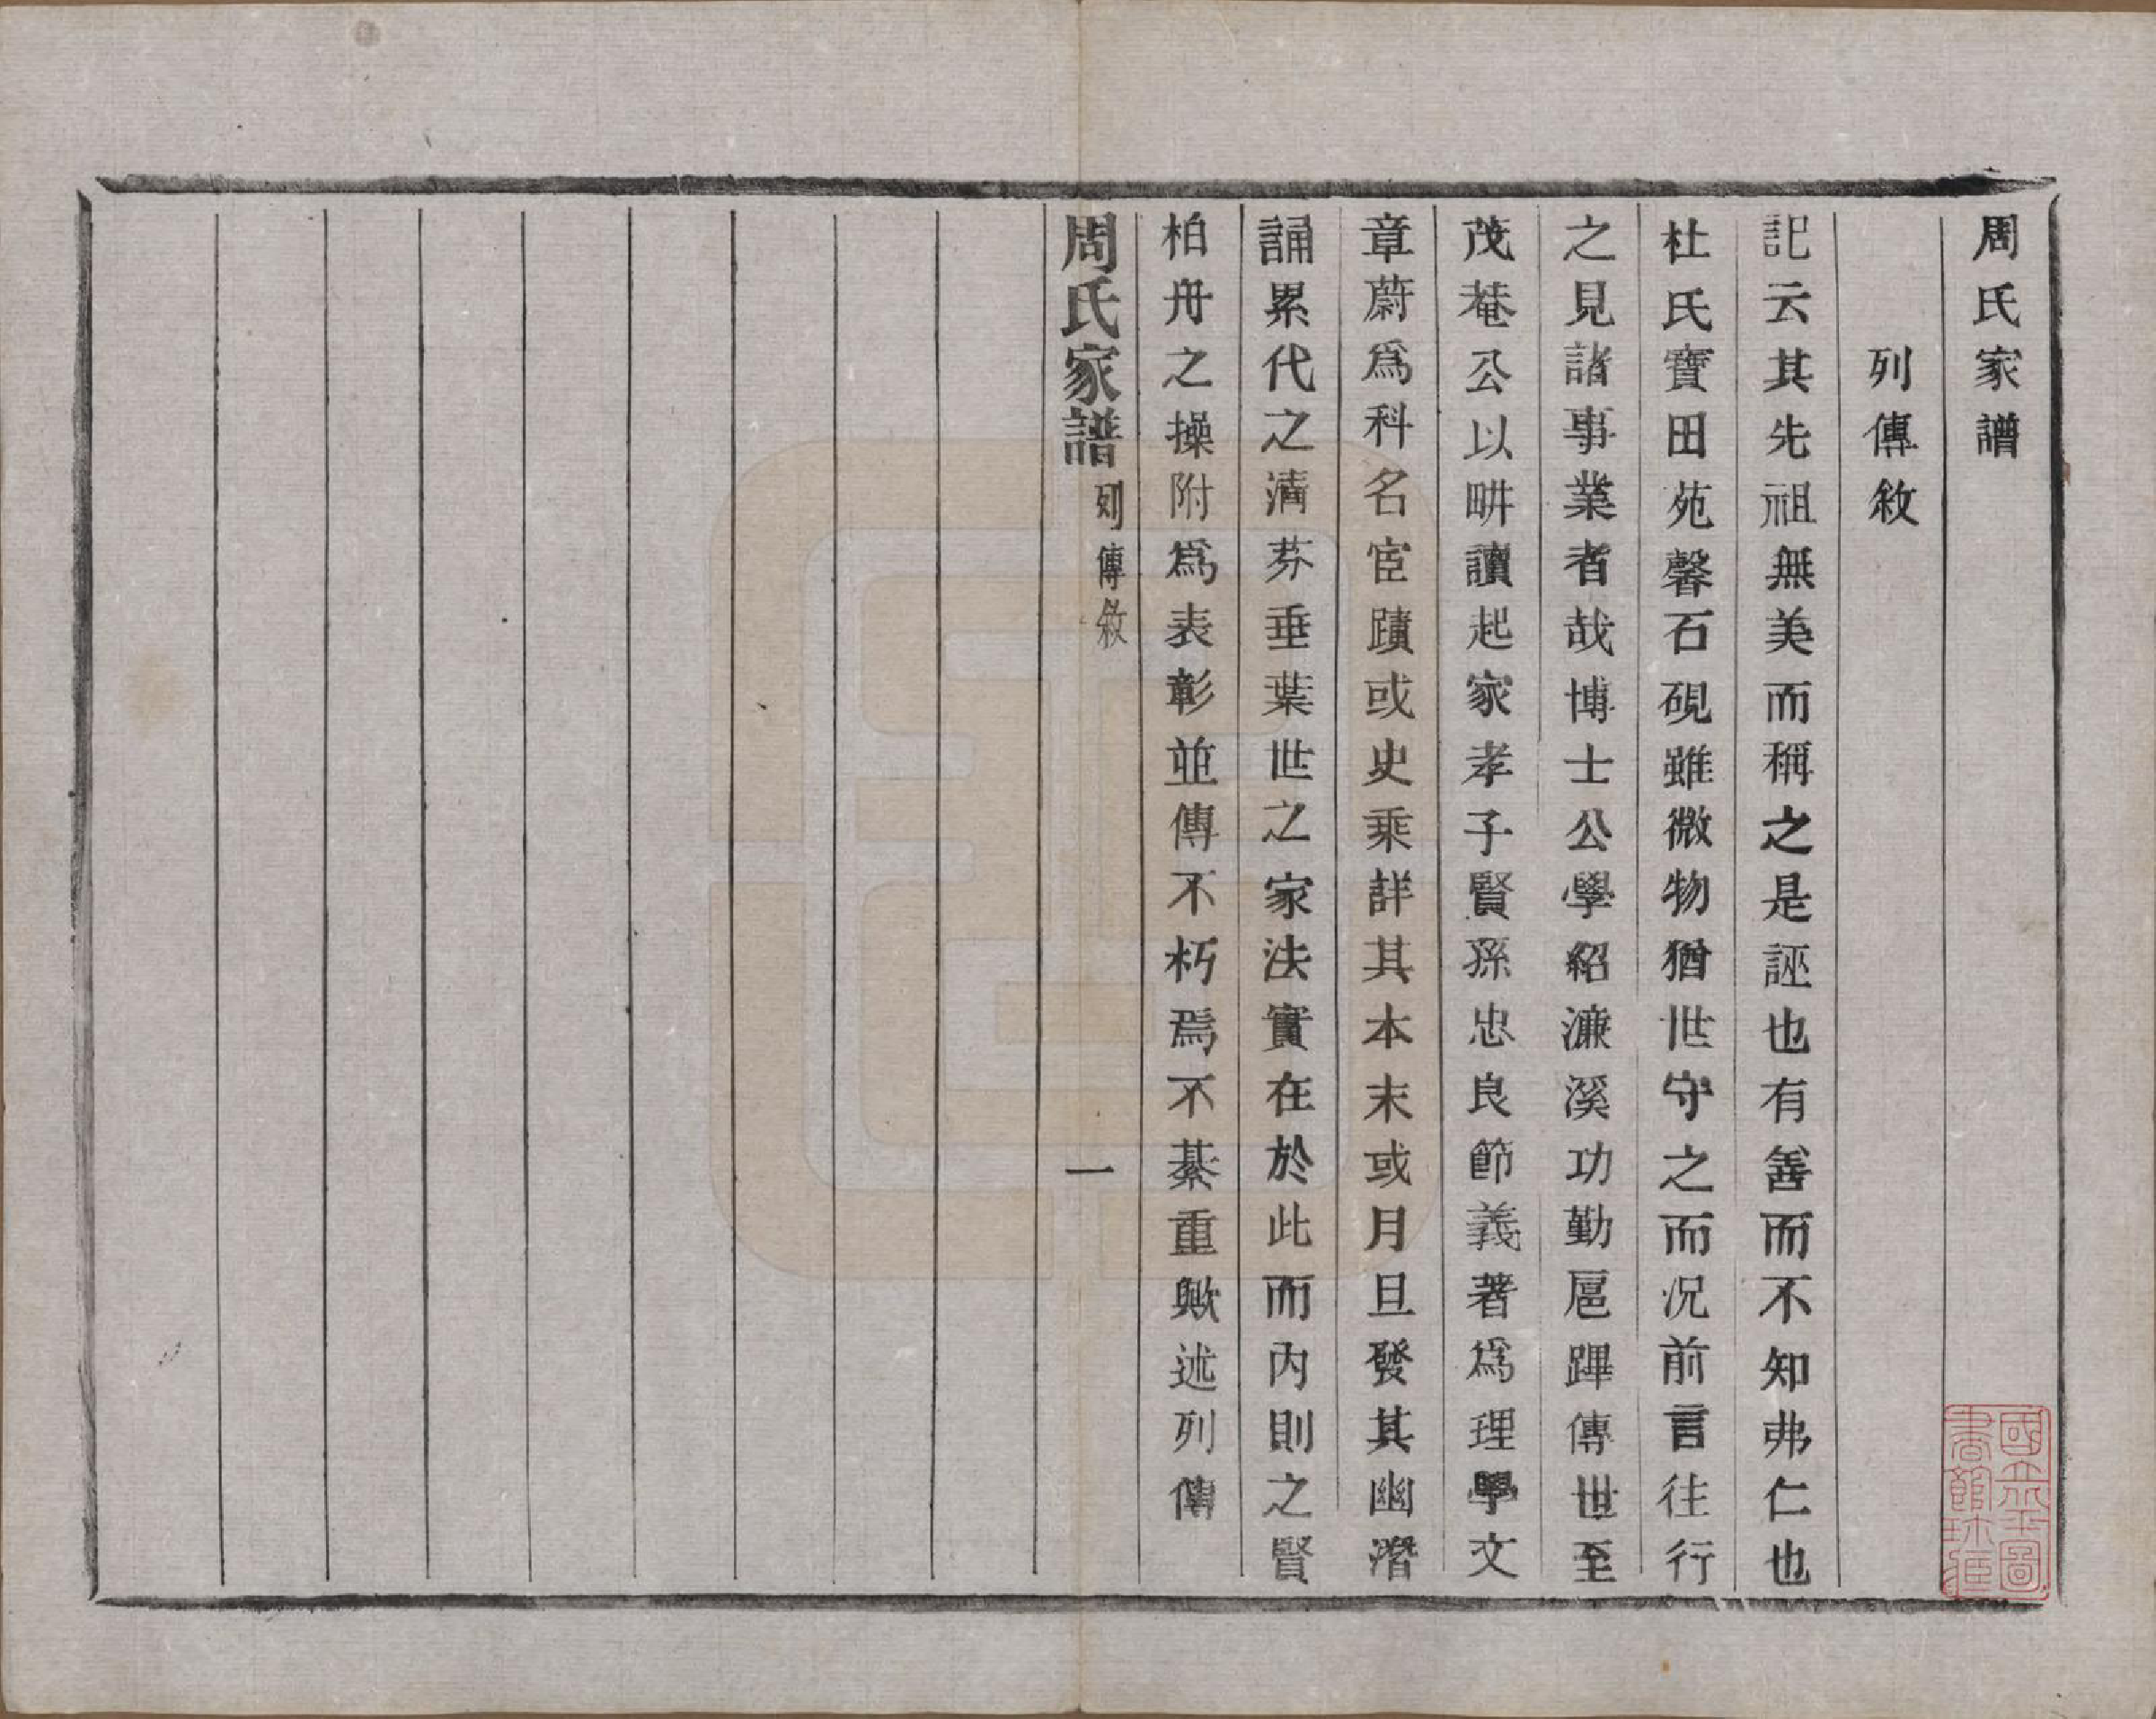 周氏家譜
列傳敘
記云其先祖無美而稱之是誣也有善而不知弗仁也
杜氏寶田苑馨石硯雖微物猶世守之而況前言往行
之見諸事業者哉博士公學紹濂溪功勤扈蹕傳世至
茂菴公以畊讀起家孝子賢孫忠良節義著爲理學文
章蔚爲科名宦蹟或史乘詳其本末或月旦發其幽潛
誦累代之清芬垂葉世之家法實在於此而內則之賢
柏舟之操附爲表彰並傳不朽焉不綦重歟述列傳
周氏家譜 列傳敘 一
國立北平圖
書館珍藏